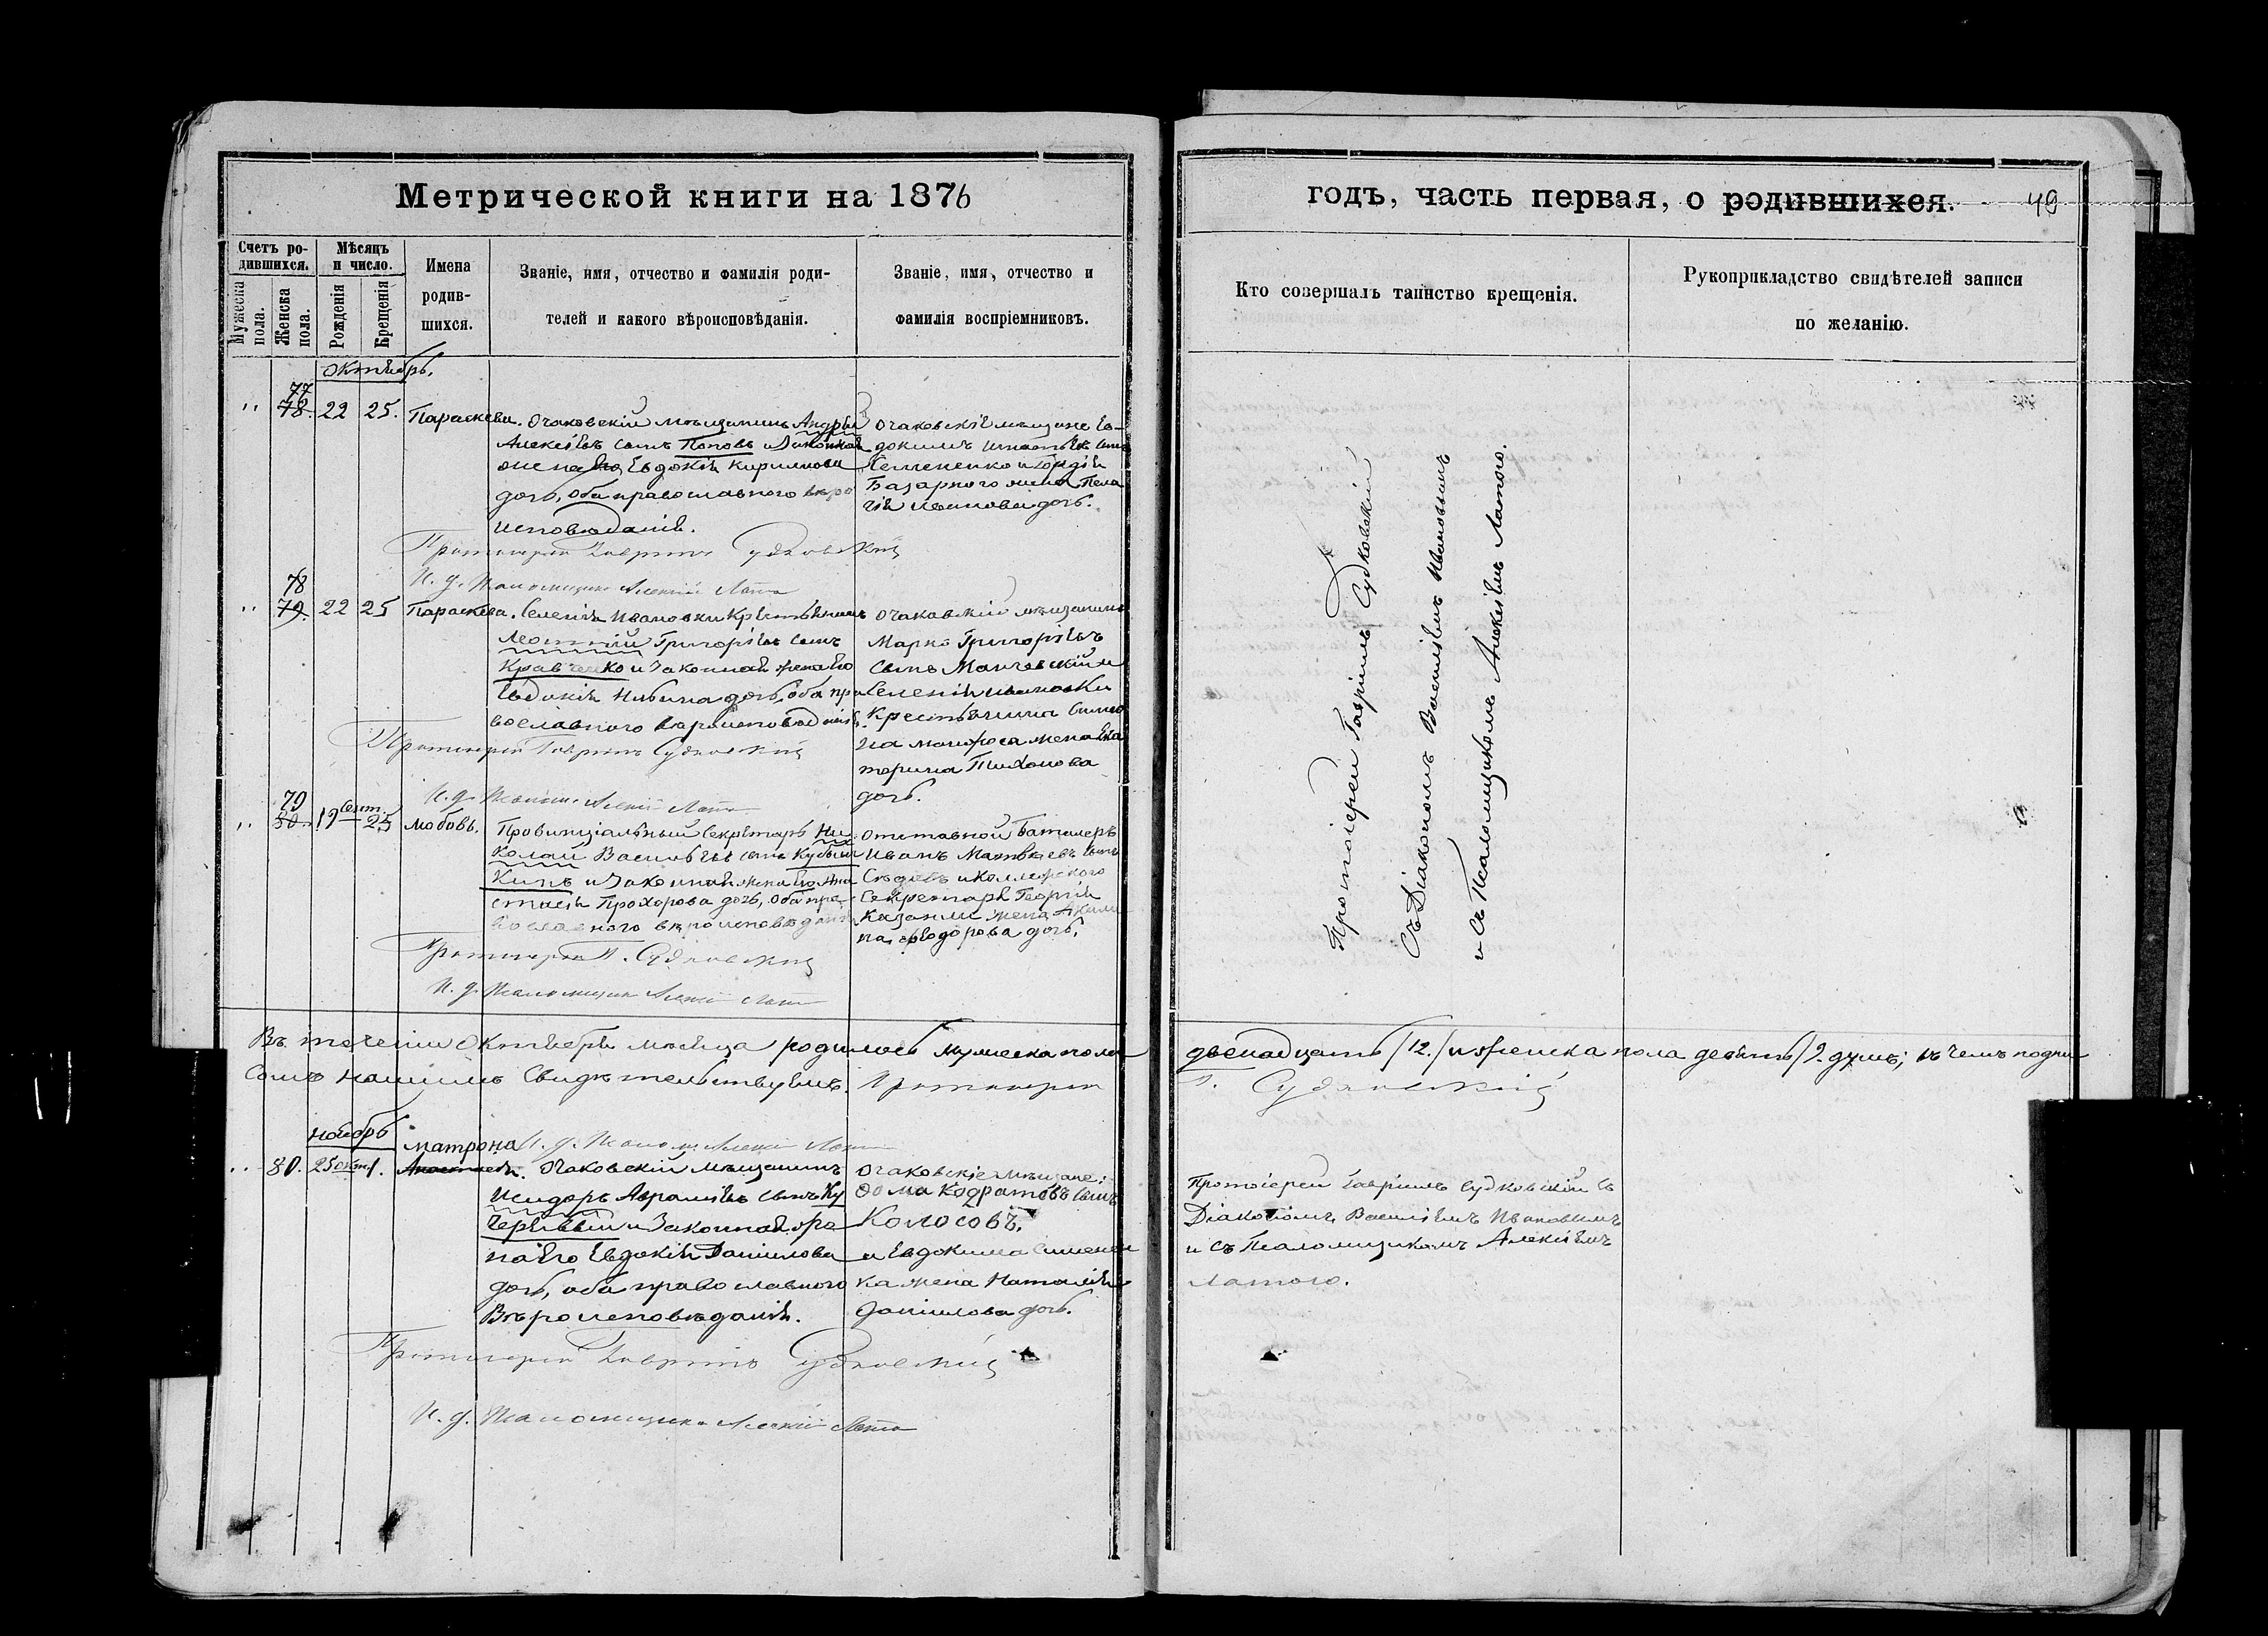 Метрической книги на 1876
Счетъ ро-
дившихся.
Мужеска пола.
Женска пола.
Мѣсяцъ
и число.
Рожденія
Крещенія
Имена
родив-
шихся.
Званіе, имя, отчество и фамилія роди-
телей и какого вѣроисповѣданія.
Званіе, имя, отчество и
фамилія воспріемниковъ.
Октябрь.
77
78. 22 25. Параскева.
Очаковскій мѣщанинъ Андрей
Алексѣевъ сынъ Поповъ и законная
жена его Евдокія Кириллова
дочь, оба православнаго вѣро
исповѣданія.
Очаковскіе мѣщане Ев-
докимъ Игнатьевъ сынъ
Семененко и
Базарного жена Пела
гія Иванова дочь.
Протоіерей Гавріилъ Судковскій
И. д. Псаломщика Алексій
78
79. 22 25 Параскева.
Селенія Ивановки крестьянинъ
Леонтій Григорьевъ сынъ
Кравченко и законная жена его
Евдокія дочь, оба пра
вославнаго вѣроисповѣданія.
Очаковскій мѣщанинъ
Марко Григорьевъ
сынъ и
Селенія Ивановки
крестьянина
жена Ека
терина Тихонова
дочь.
Протоіерей Гавріилъ Судковскій
И. д. Псаломщ. Алексій
79
80. 19 Сент. 25 Любовь.
Провинціальный Секретарь Ни
колай Васильевъ сынъ
и законная жена его Ана
стасія Прохорова дочь, оба пра-
вославнаго вѣроисповѣданія
Отставной Баталеръ
Иванъ Матвѣевъ сынъ
и Коллежскаго
Секретаря Георгія
Казанли жена Акили
на Ѳеодорова дочь.
Протоіерей Г. Судковскій
И. д. Псаломщика Алексій
Въ теченіи Октября мѣсяца родилось мужеска пола
самъ нашимъ свидѣтельствуемъ. Протоіерей
Ноябрь
И. д. Псаломщ. Алексій
80. 25 окт. 1. Матрона
Анастасія.
Очаковскій мѣщанинъ
Исидоръ Аврамовъ сынъ Ку
черявый и законная же
на его Евдокія Даніилова
дочь, оба православнаго
Вѣроисповѣданія.
Очаковскіе мѣщане:
Ѳома Кодратовъ сынъ
Колосовъ,
и Евдокима Симонен
ка жена Наталія
Даніилова дочь.
Протоіерей Гавріилъ Судковскій
И. д. Псаломщика Алексій
годъ, часть первая, о родившихся.
49
Кто совершалъ таинство крещенія.
Рукоприкладство свидѣтелей записи
по желанію.
Протоіерей Гавріилъ Судковскій
Съ Діакономъ Василіемъ Ивановымъ
и съ Псаломщикомъ Алексѣемъ Латого.
двенадцать /12./ и женска пола девять /9. душъ; въ чемъ подпи
Г. Судковскій
Протоіерей Гавріилъ Судковскій съ
Діакономъ Василіемъ Ивановымъ
и съ Псаломщикомъ Алексѣемъ
Латого.